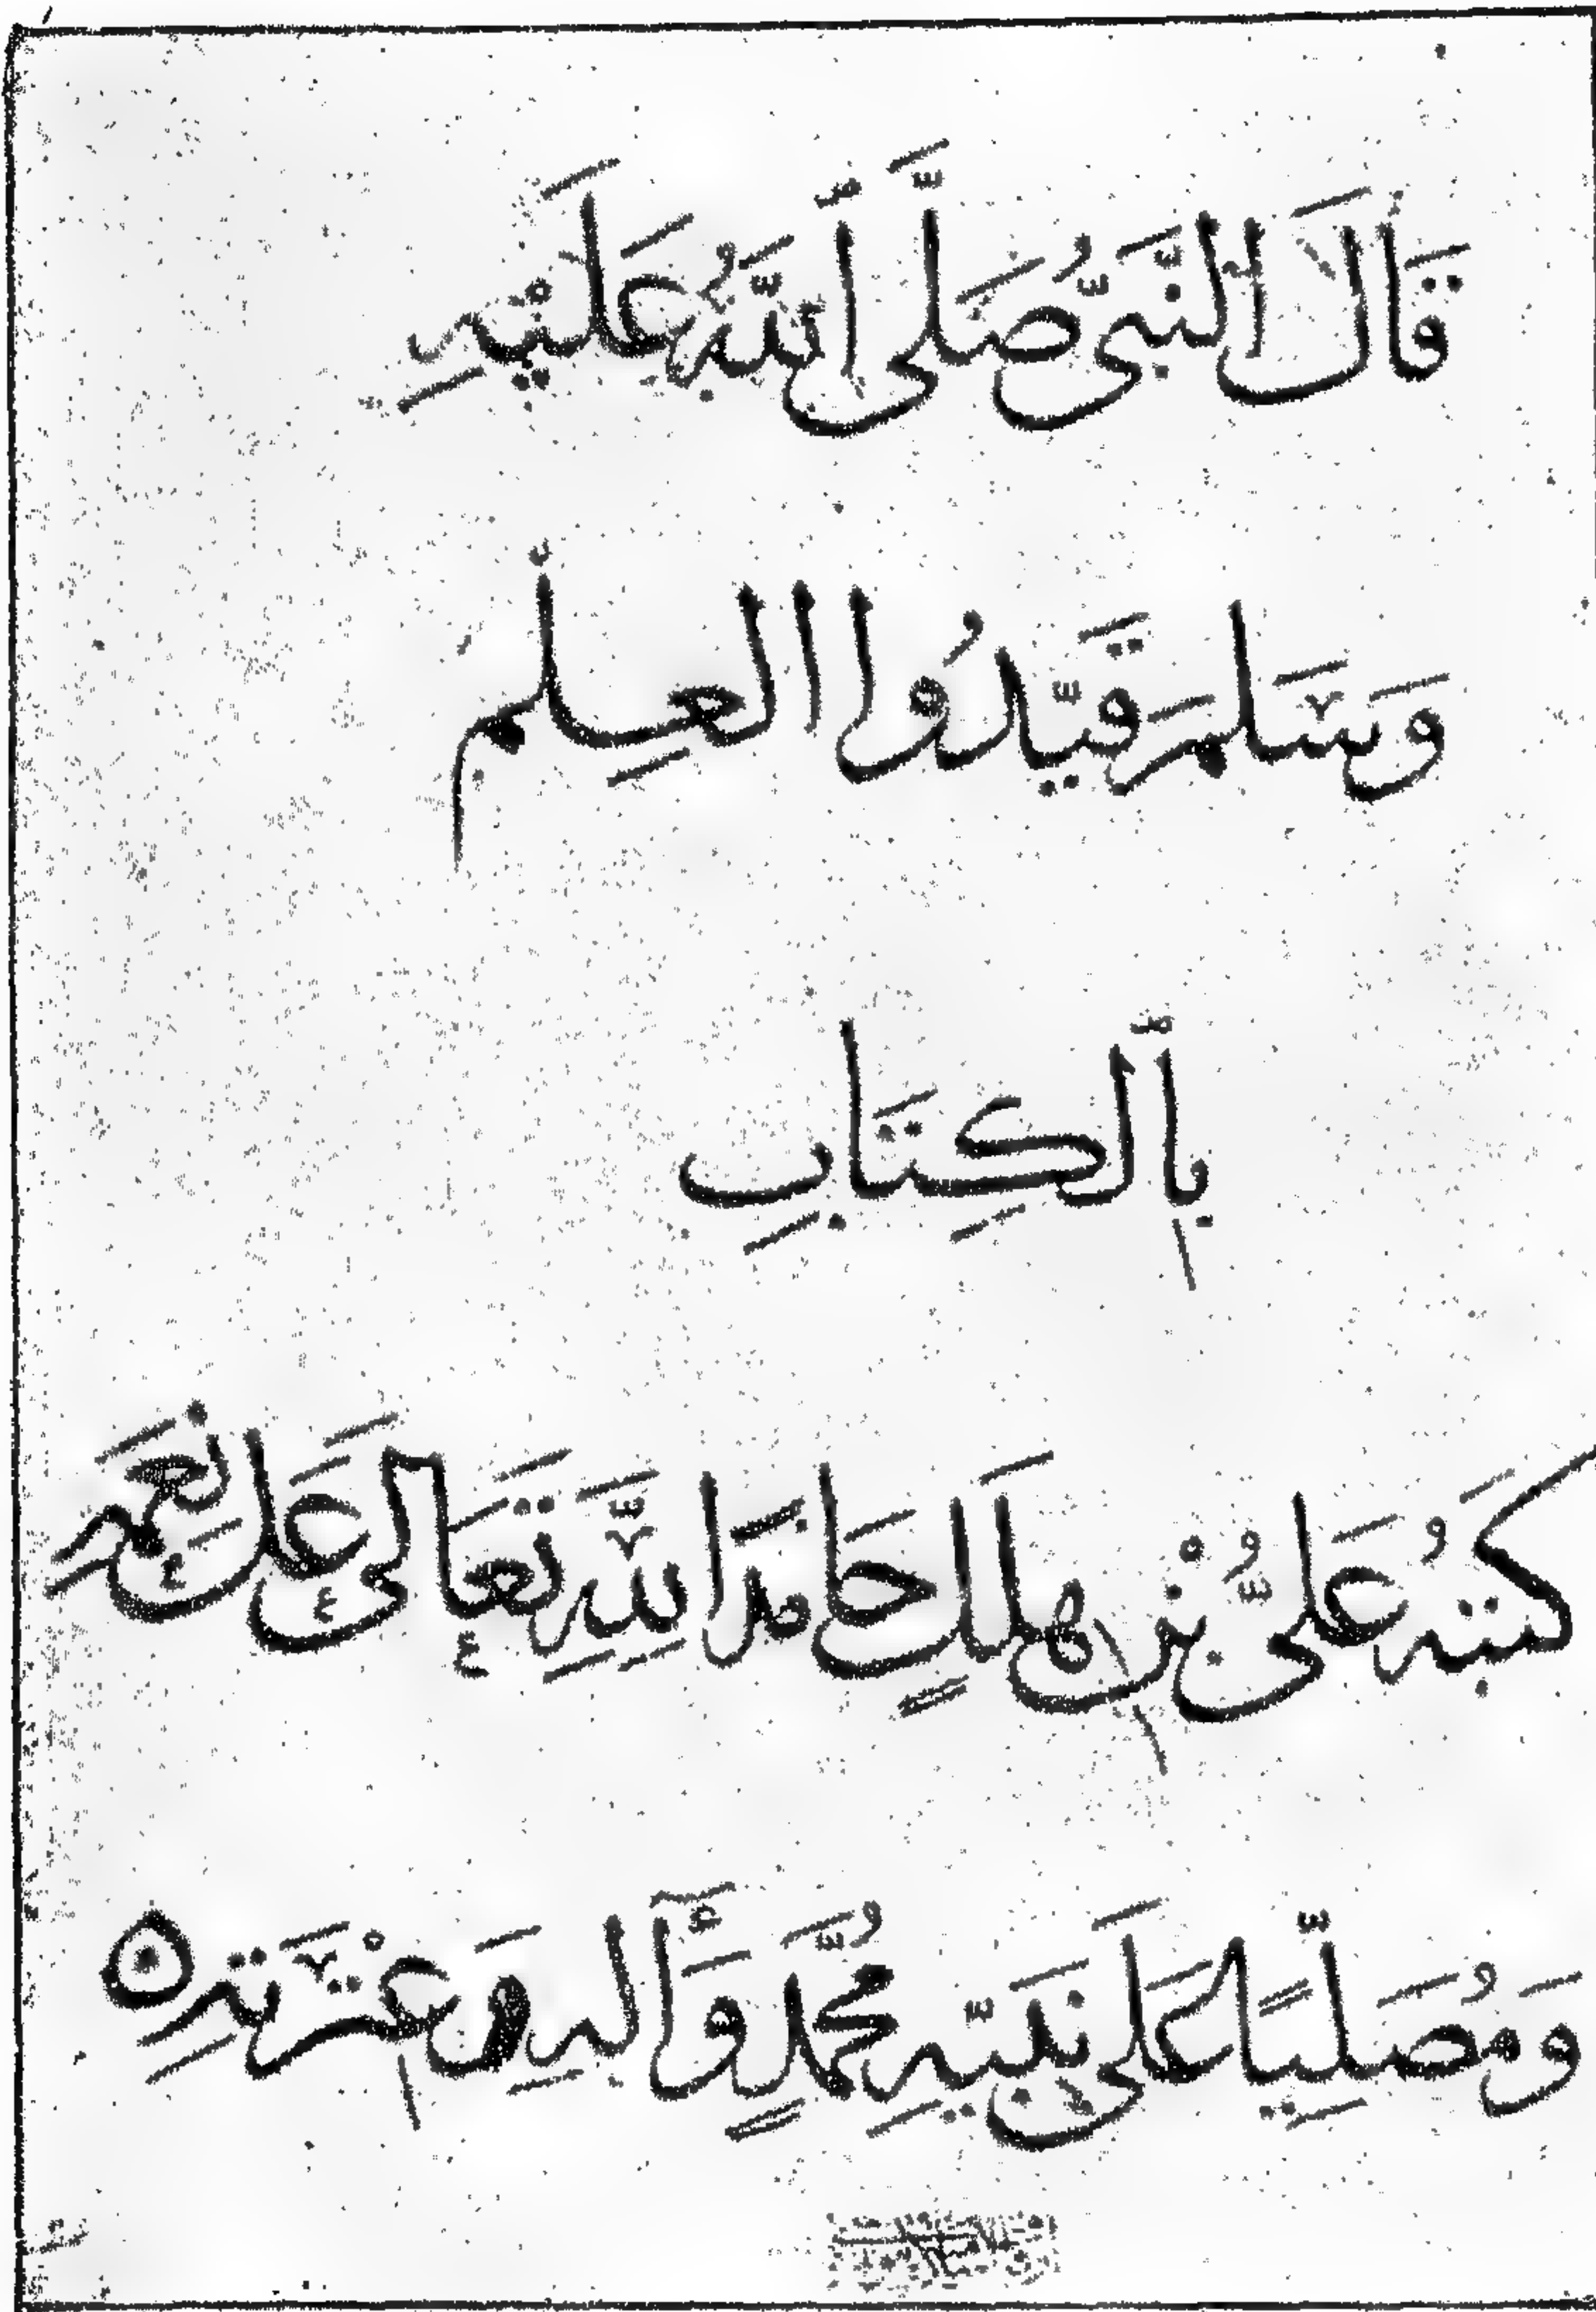 قَالَ النَّبِيُّ صَلَّى ٱللَّهُ عَلَيْهِ
وَسَلَمَ قَيِّدُوا العِلْم
بِٱلكِتَابِ
كَتَبَهُ عَلِيُّ بْنُ هِلَالٍ حَامِدًا لِلَّهِ تَعَالَى عَلَى نِعَمِهِ
وَمُصَلِّيًا عَلَى نَبِيِّهِ مُحَمَّدٍ وَآلِهِ وَعِتْرَتِهِ